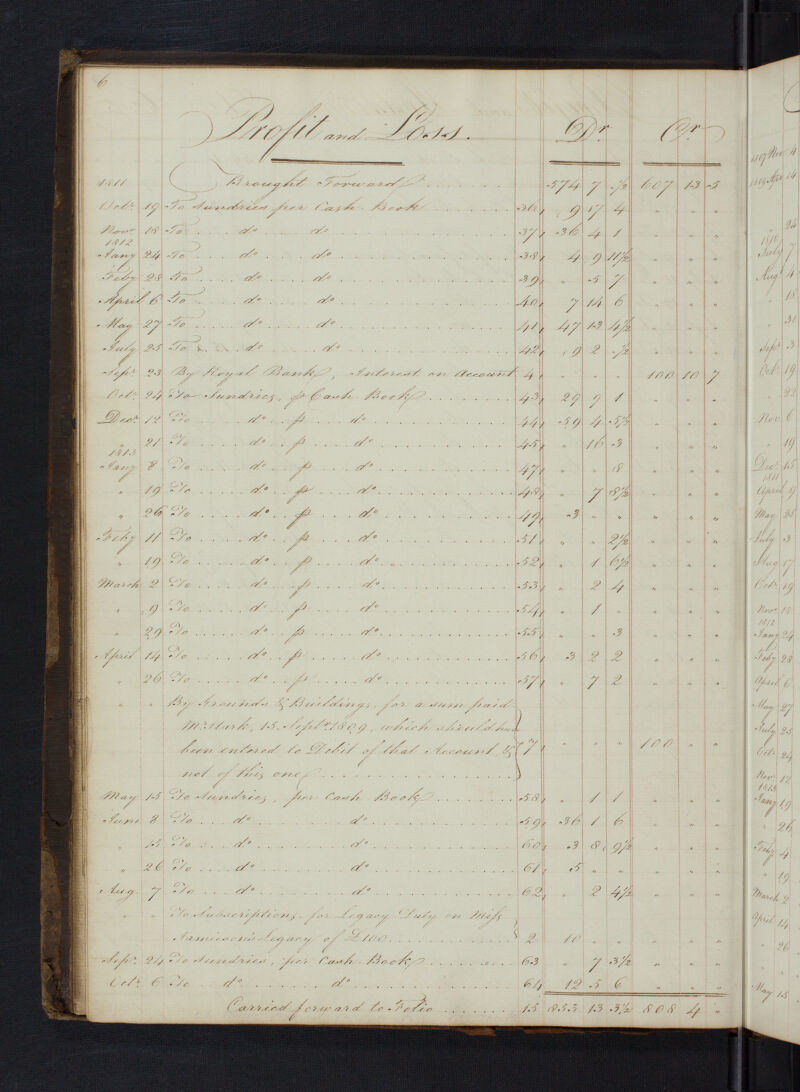 6
Profit and Loss. Dr. Cr.
1811 Brought Forward 574 7 ½ 607 13 5
Octr. 19 To Sundries per Cash Book 36 " 9 17 4 " " "
Novr. 18 To do do 37 36 4 1 " " "
1812
Jany 24 To do do 38 4 9 11½ " " "
Feby 28 To do do 39 " 5 7 " " "
April 6 To do do 40 7 14 6 " " "
May 27 To do do 41 47 13 4½ " " "
July 25 To do do 42 9 2 ½ " " "
Septr. 23 By Royal Bank, Interest on Account 4 " " " 100 10 7
Octr. 24 To Sundries, p Cash Book 43 29 9 1 " " "
Decr. 12 To do p do 44 59 4 5½ " " "
" 21 To do p do 45 " 16 3 " " "
1813
Jany 8 To do p do 47 " " 8 " " "
" 19 To do p do 48 " 7 8½ " " "
" 26 To do p do 49 3 " " " " "
Feby 11 To do p do 51 " " 2½ " " "
" 19 To do p do 52 " 1 6½ " " "
March 2 To do p do 53 " 2 4 " " "
" 9 To do p do 54 " 1 " " " "
" 29 To do p do 55 " " 3 " " "
April 14 To do p do 56 3 2 2 " " "
" 26 To do p do 57 " 7 2 " " "
" " By Grounds & Buildings, for a sum paid
Mr. Stark, 15 Septr. 1809, which should have
been entered to Debit of that Account, & 7 " " " 100 " "
not of this one
May 15 To Sundries, per Cash Book 58 " 1 1 " " "
June 8 To do do 59 36 1 6 " " "
" 15 To do do 60 3 8 9½ " " "
" 26 To do do 61 5 " " " " "
Aug. 7 To do do 62 " 2 4½ " " "
" " To Subscriptions, for Legacy Duty on Miss
Jamieson's Legacy of £100 2 10 " " " " "
Septr. 24 To Sundries, per Cash Book 63 " 7 3½ " " "
Octr. 6 To do do 64 12 5 6 " " "
Carried forward to Folio 15 853 13 3½ 808 4 "
1809 Novr 4
1810 Apr 14
24
1810
July 7
Augt 4
" 18
" 31
Septr 3
Octr 19
" 22
Nov. 6
" 19
Decr. 15
1811
April 9
May 25
July 3
Aug 17
Octr 19
Novr. 18
1812
Jany 24
Feby 28
April 6
May 27
July 25
Octr 24
Novr 12
1813
Jany 19
" 26
Feby 4
" 19
March 2
April 14
" 26
May 15